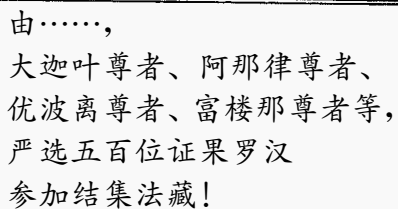 由……，
大迦叶尊者、阿那律尊者、
优波离尊者、富楼那尊者等，
严选五百位证果罗汉
参加结集法藏！